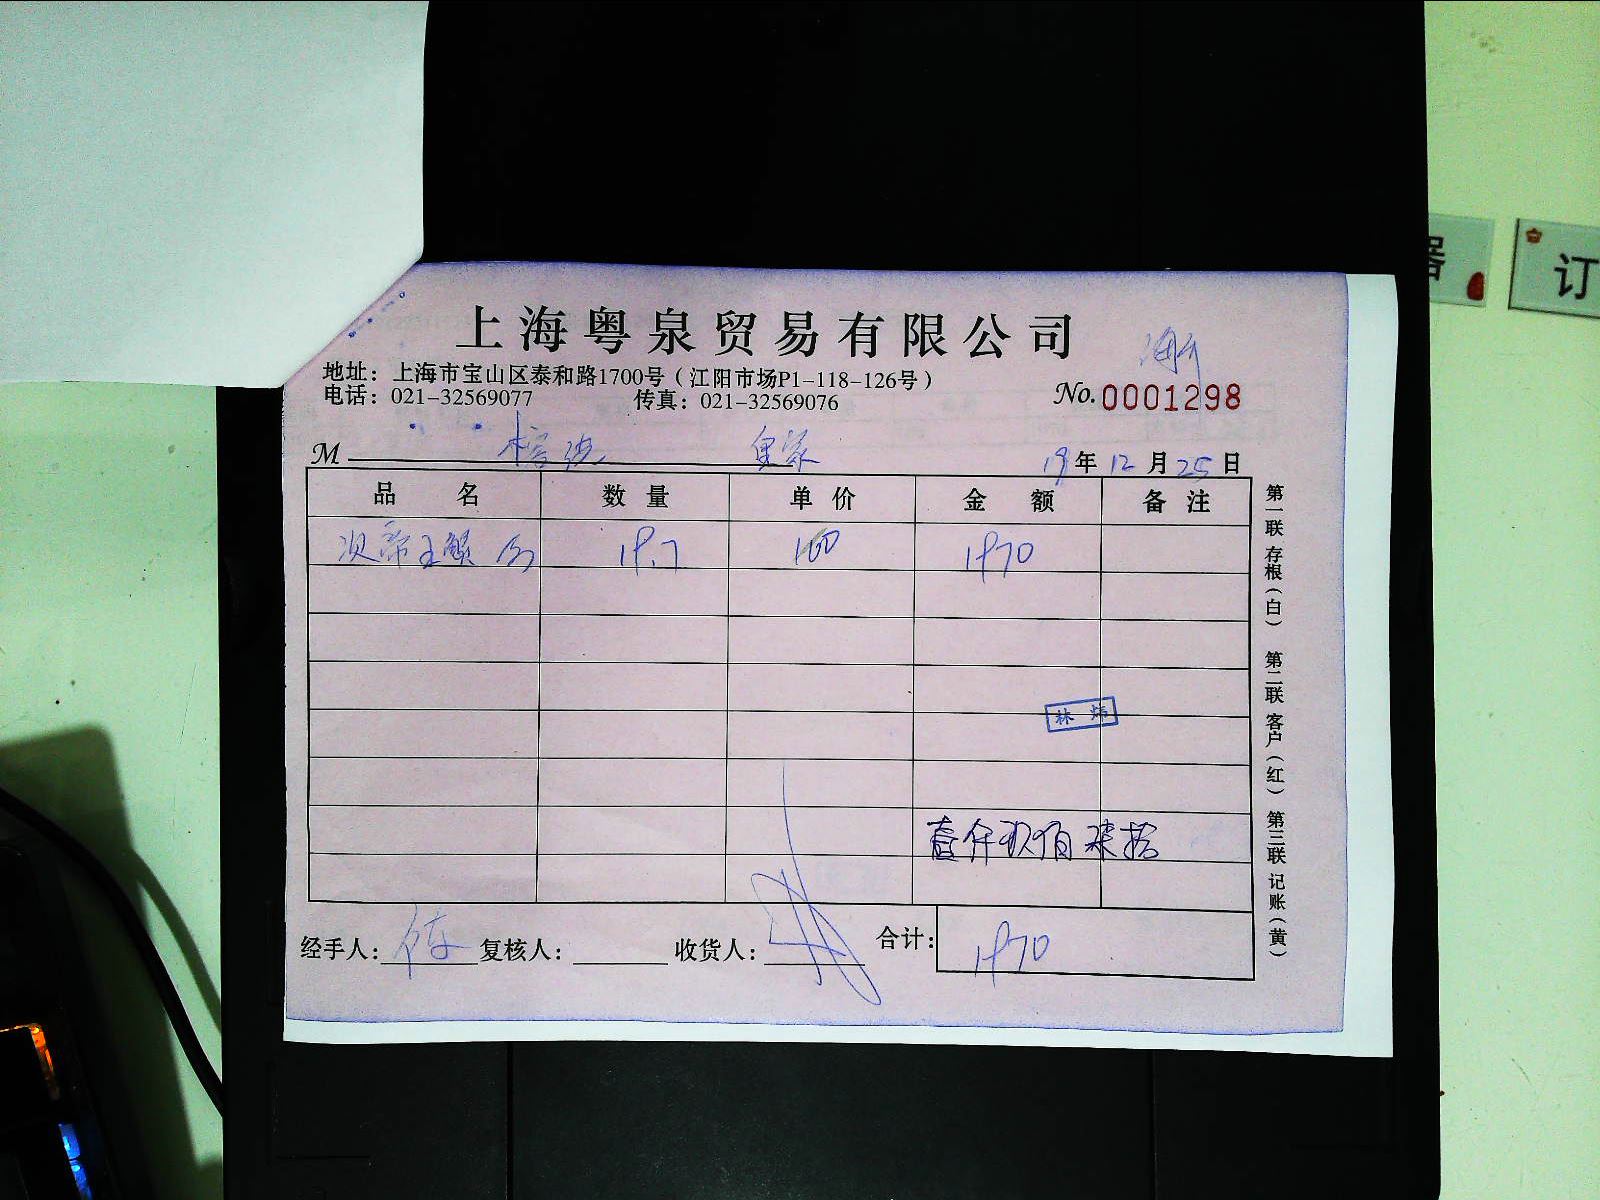 上海粤泉贸易有限公司
地址：上海市宝山区泰和路1700号（江阳市场P1-118-126号）
电话：021-32569077 传真：021-32569076
No.0001298
M 皇家 19年12月25日
品名 数量 单价 金额 备注
次帝王鲜 19.7 100 1970
林炜
壹仟玖佰柒拾
经手人： 复核人： 收货人： 合计：1970
第一联 存根（白） 第二联 客户（红） 第三联 记账（黄）
器
订